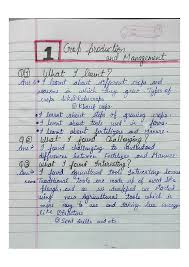 1 Crop production
and Management
Q① What I learnt?
Ans• I learnt about different crops and
seasons in which they grow Types of
crops
Kharif crops
• I learnt about steps of growing crops.
• I learnt about tools used in a farm.
• I learnt about fertilizers and Manure.
Q② What I found Challenging?
Ans• I found challenging to understand
differences between Fertilizer and Manure
Q③ What I found Interesting?
Ans• I found agricultural tools interesting because
Traditional tools are made up of wood like
plough and as we
new Agricultural Tools which is
more easy to use and things less energy
like Cultivators
Seed drills and etc.